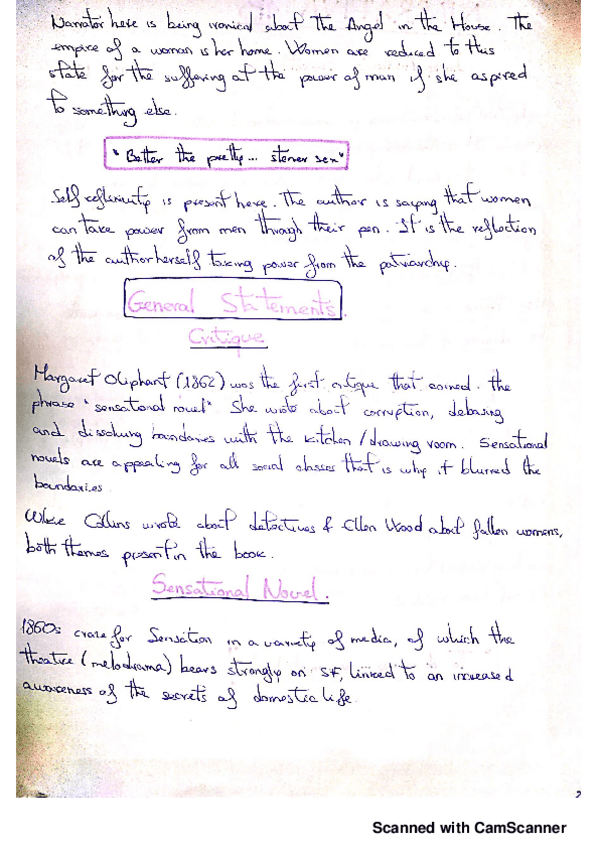 Narrator here is being ironical about The Angel in the House. The
empire of a woman is her home. Women are reduced to this
state for the suffering of the power of man if she aspired
to something else.
"Better the pretty... sterner sex"
Self reflexivity is present here. The author is saying that women
can take power from men through their pen. It is the reflection
of the author herself taking power from the patriarchy.
General Statements.
Critique
Margaret Oliphant (1862) was the first critique that coined. the
phrase "sensational novel" She wrote about corruption, debasing
and dissolving boundaries with the kitchen/drawing room. Sensational
novels are appealing for all social classes that is why it blurred the
boundaries.
Collins wrote about detectives & Ellen Wood about fallen womens,
both themes present in the book.
Sensational Novel.
1860s craze for Sensation in a variety of media, of which the
theatre (melodrama) bears strongly on SF, linked to an increased
awareness of the secrets of domestic life.
Scanned with CamScanner